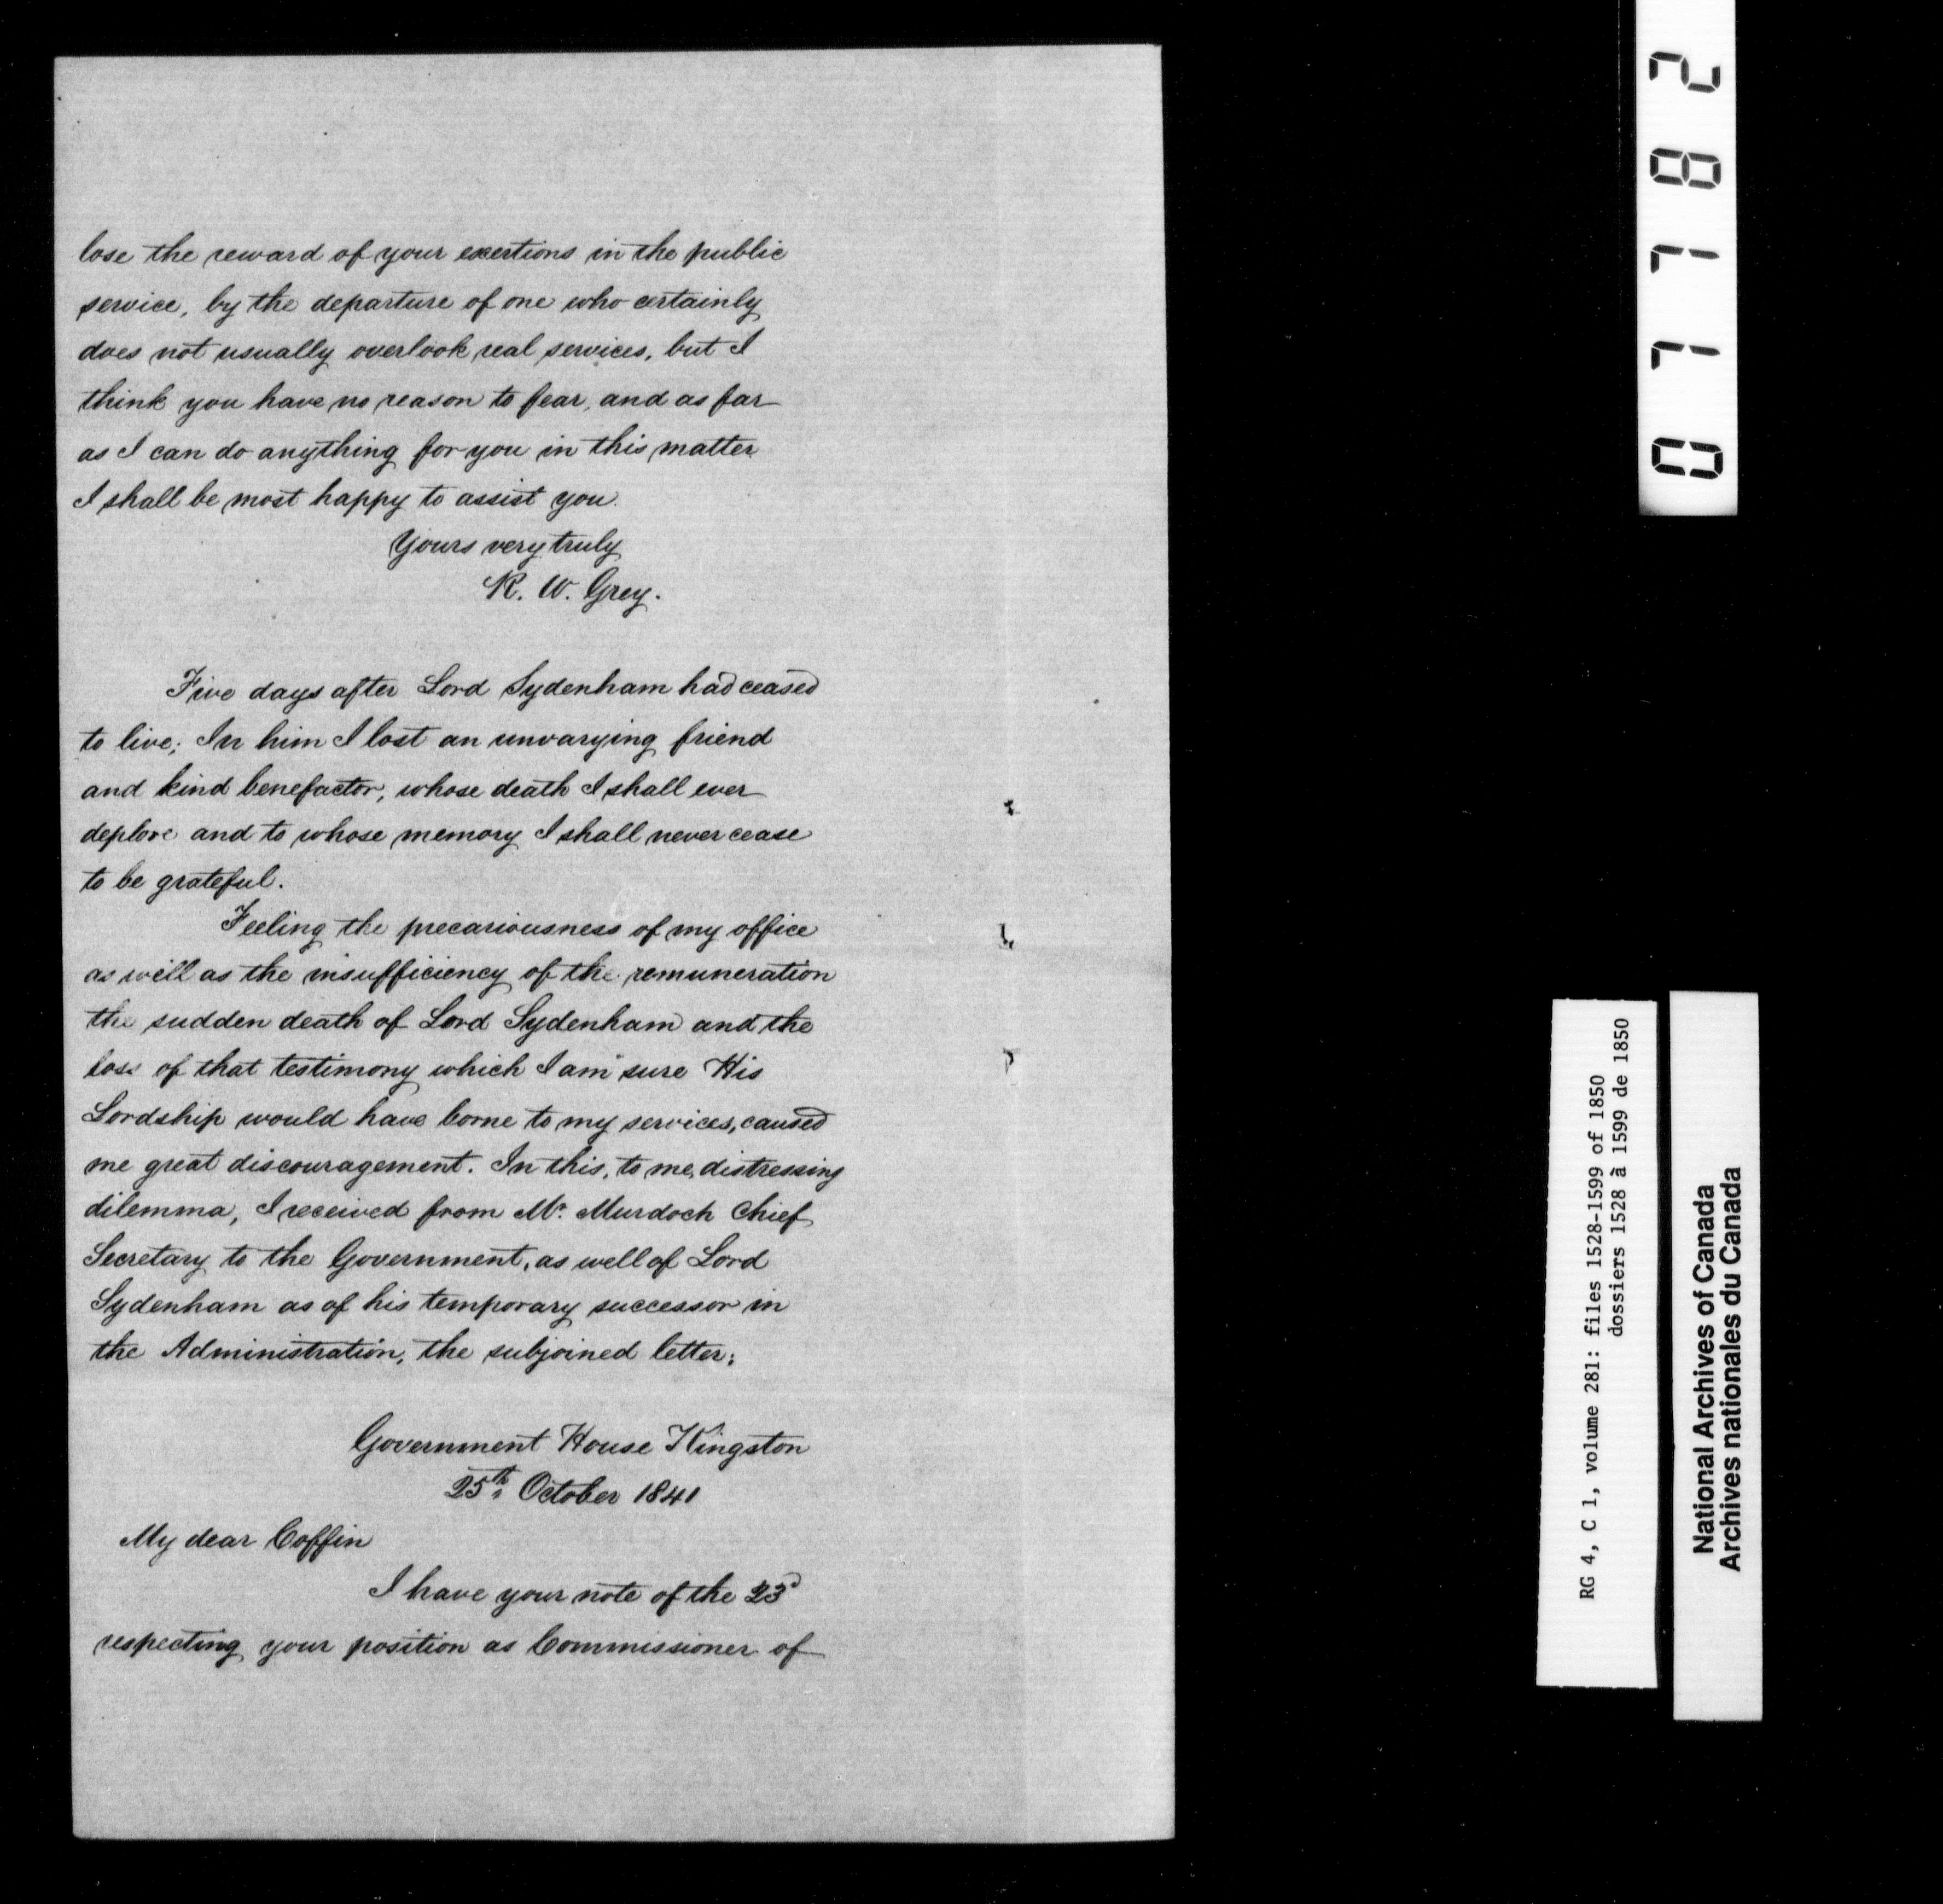 lose the reward of your exertions in the public
service, by the departure of one who certainly
does not usually overlook real services, but I
think you have no reason to fear, and as far
as I can do anything for you in this matter
I shall be most happy to assist you.
Yours very truly
R. W. Grey.
Five days after Lord Sydenham had ceased
to live; In him I lost an unvarying friend
and kind benefactor, whose death I shall ever
deplore and to whose memory I shall never cease
to be grateful.
Feeling the precariousness of my office
as well as the insufficiency of the remuneration
the sudden death of Lord Sydenham and the
loss of that testimony which I am sure His
Lordship would have borne to my services, caused
me great discouragement. In this, to me, distressing
dilemma, I received from Mr. Murdoch Chief
Secretary to the Government, as well of Lord
Sydenham as of his temporary successor in
the Administration, the subjoined letter;
Government House Kingston
25th October 1841
My dear Coffin
I have your note of the 23d
respecting your position as Commissioner of
077182
RG 4, C 1, volume 281: files 1528-1599 of 1850
dossiers 1528 à 1599 de 1850
National Archives of Canada
Archives nationales du Canada